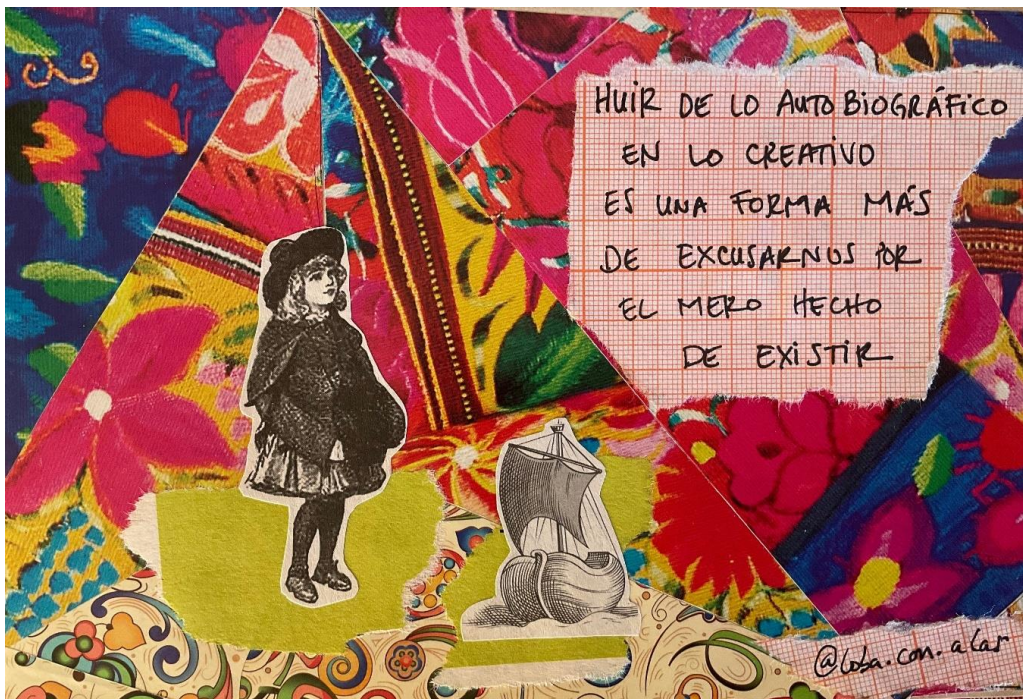 HUIR DE LO AUTOBIOGRÁFICO
EN LO CREATIVO
ES UNA FORMA MÁS
DE EXCUSARNOS POR
EL MERO HECHO
DE EXISTIR
@loba.con.alas